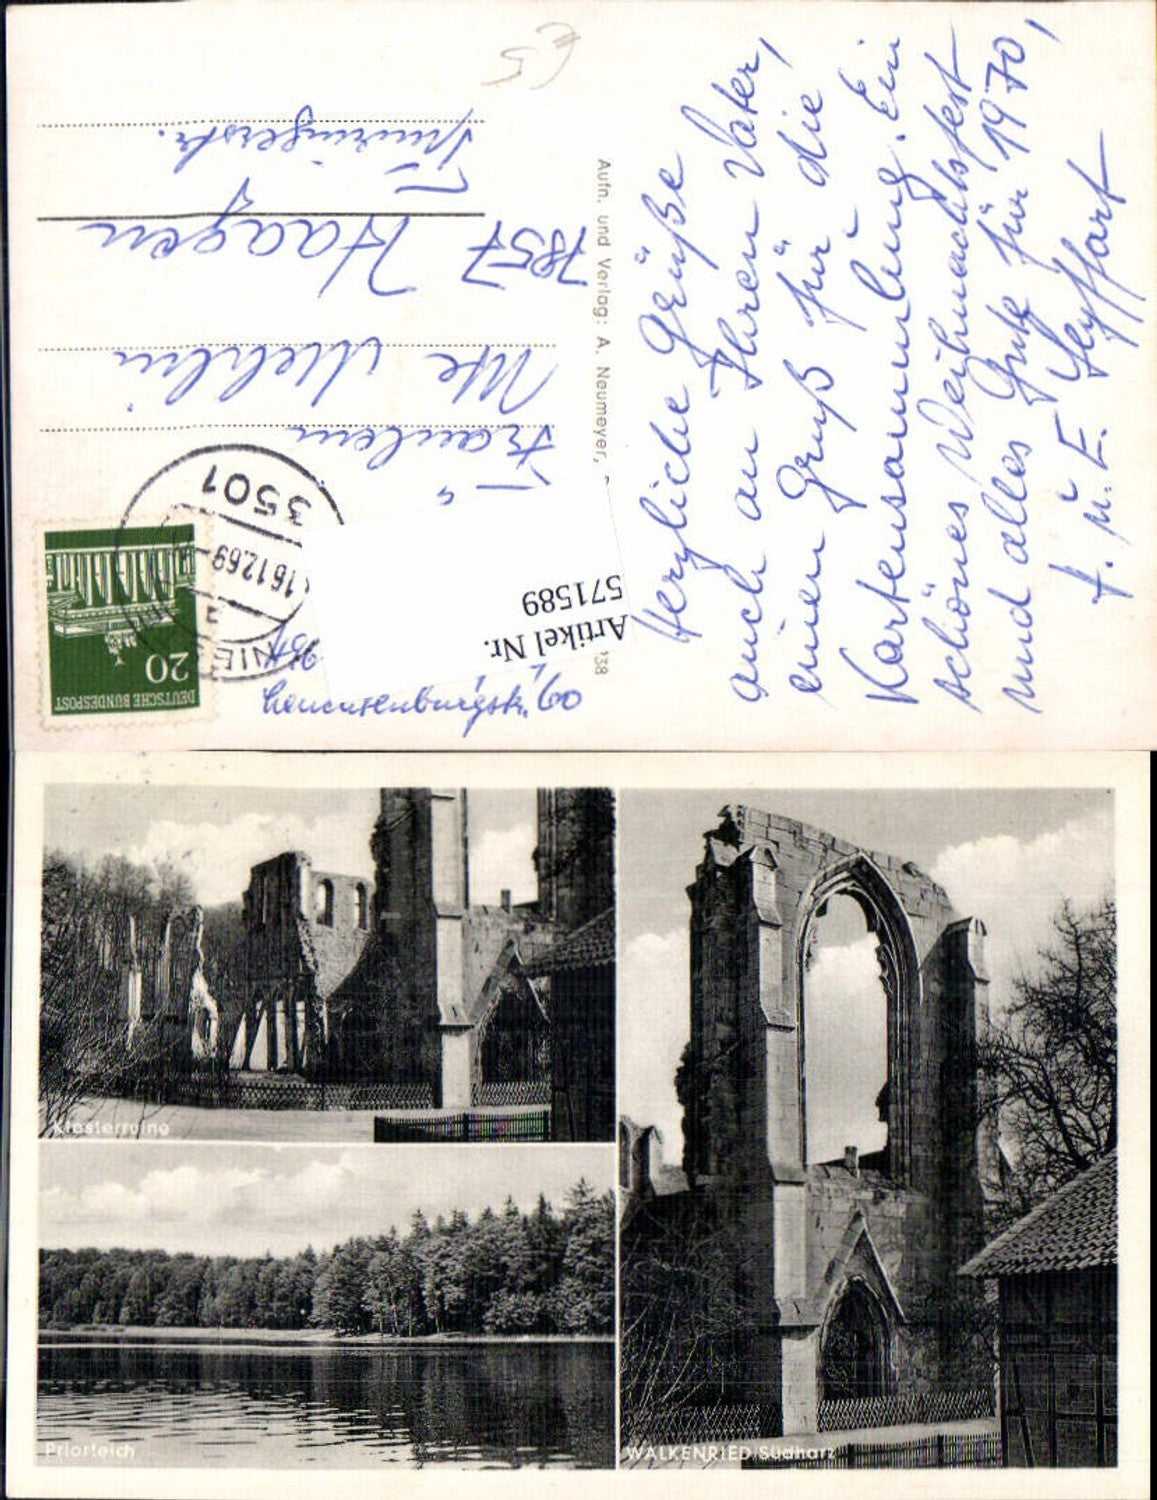 €5
Herzliche Grüße
auch an Ihren Vater,
einen Gruß für die
Kartensammlung. Ein
schönes Weihnachtsfest
und alles Gute für 1970,
F. u. E. Seyffart
Aufn. und Verlag: A. Neumeyer,
238
DEUTSCHE BUNDESPOST
20
3501
16.12.69
NIE
Fräulein
Ute Mehlin
7857 Haagen
Thüringerstr.
Artikel Nr.
571589
Klosterruine
Priorteich
WALKENRIED/Südharz